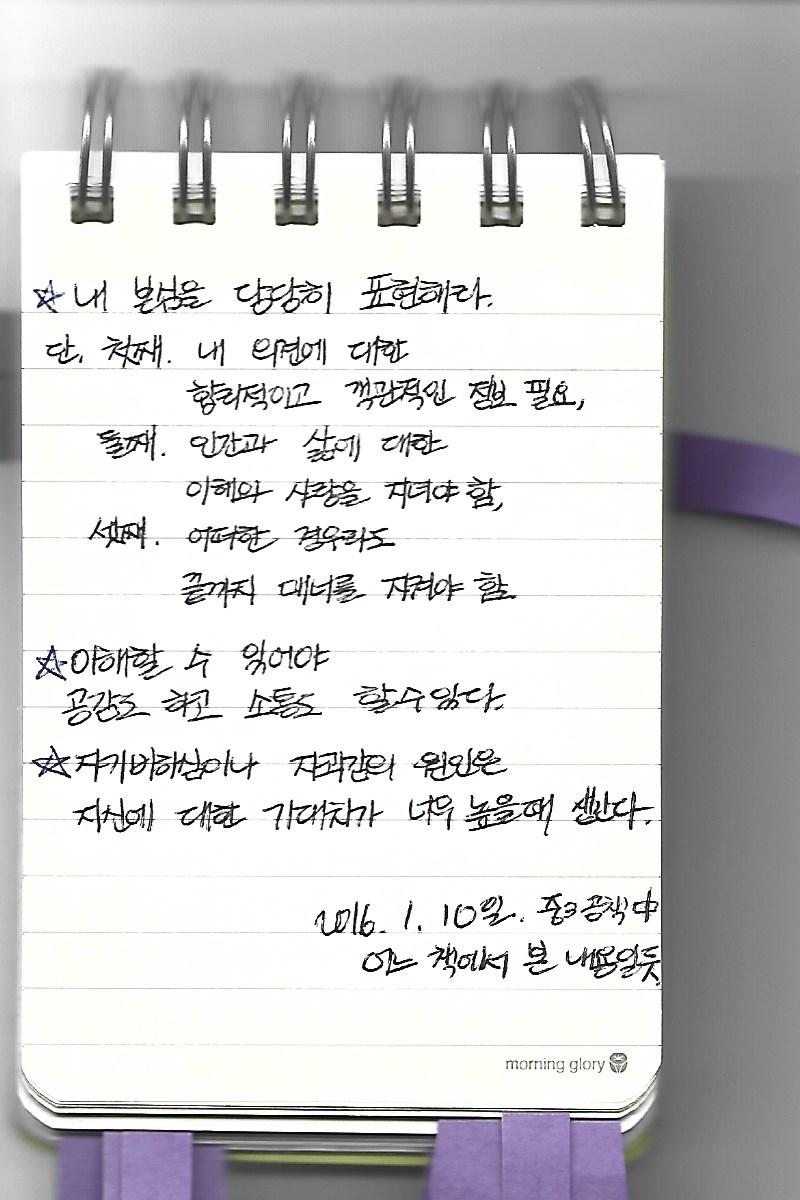 ☆ 내 본심을 당당히 표현해라.
단, 첫째. 내 의견에 대한
합리적이고 객관적인 정보 필요,
둘째. 인간과 삶에 대한
이해와 사랑을 지녀야 함,
셋째. 어떠한 경우라도
끝까지 매너를 지켜야 함.
☆ 이해할 수 있어야
공감도 하고 소통도 할 수 있다.
☆ 자기비하심이나 자괴감의 원인은
자신에 대한 기대치가 너무 높을 때 생긴다.
2016. 1. 10일. 중3 공책 中
어느 책에서 본 내용일듯
morning glory